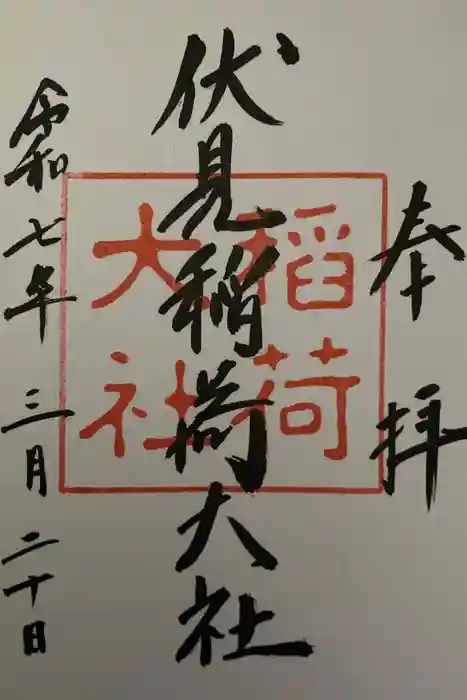 奉拝
伏見稲荷大社
稲荷
大社
令和七年三月二十日